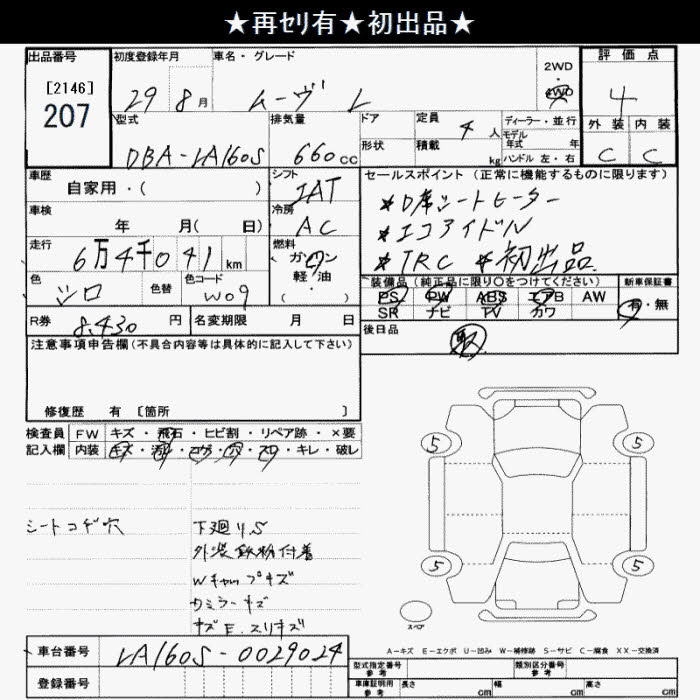 ★再セリ有★初出品★
出品番号
[2146]
207
初度登録年月
29 8月
車名・グレード
ムーヴ L
2WD
・
4WD
評価点
4
外装 内装
C C
型式
DBA-LA160S
排気量
660cc
ドア
定員
4人
形状
積載
kg
ディーラー・並行
モデル
年式 年
ハンドル 左・右
車歴
自家用・( )
シフト
IAT
セールスポイント(正常に機能するものに限ります)
*D席シートヒーター
*エコアイドル
*TRC *初出品
車検
年 月( 日)
冷房
AC
走行
6万4千041km
燃料
ガソリン
軽・油
・
色
シロ
色替
色コード
W09
装備品(純正品に限り○をつけてください)
PS PW ABS エアB AW
SR ナビ TV カワ
新車保証書
有・無
R券
8,430円
名変期限 月 日
後日品
取
注意事項申告欄(不具合内容等は具体的に記入して下さい)
修復歴 有 [箇所 ]
検査員
記入欄
FW キズ・飛石・ヒビ割・リペア跡・×要
内装 キズ・汚レ・コゲ・穴・スレ・キレ・破レ
シートコゲ穴
下廻りS
外装鉄粉付着
Wキャップキズ
ウミラーキズ
キズE.スリキズ
5 5
5 5
スペア
A-キズ E-エクボ U-凹み W-補修跡 S-サビ C-腐食 XX-交換済
車台番号
LA160S-0029024
登録番号
型式指定番号
参考
類別区分番号
参考
車庫証明用
参考
長さ cm 幅 cm 高さ cm